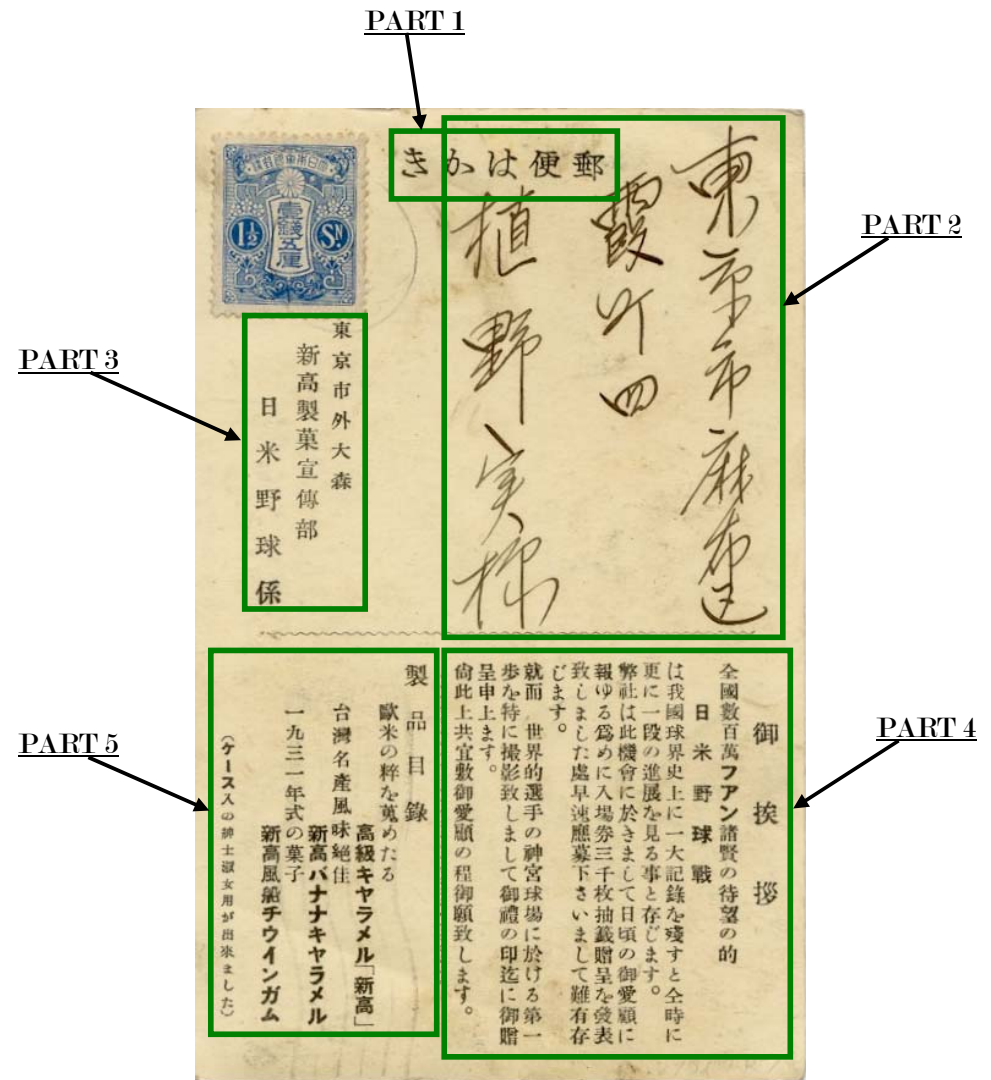 PART 1
郵便はかき
PART 2
東京市麻布区
霞町四
植野実様
大日本帝國郵便
壹錢五厘
1½
SN.
PART 3
東京市外大森
新高製菓宣傳部
日米野球係
PART 4
御挨拶
全國數百萬フアン諸賢の待望の的
日米野球戰
は我國球界史上に一大記錄を殘すと仝時に
更に一段の進展を見る事と存じます。
弊社は此機會に於きまして日頃の御愛顧に
報ゆる爲めに入場券三千枚抽籤贈呈を發表
致しました處早速應募下さいまして難有存
じます。
就而 世界的選手の神宮球場に於ける第一
步を特に撮影致しまして御禮の印迄に御贈
呈申上ます。
尙此上共宜敷御愛顧の程御願致します。
PART 5
製品目錄
歐米の粹を蒐めたる
高級キヤラメル「新高」
台灣名產風味絕佳
新高バナナキヤラメル
一九三一年式の菓子
新高風船チウインガム
(ケース入の紳士淑女用が出來ました)